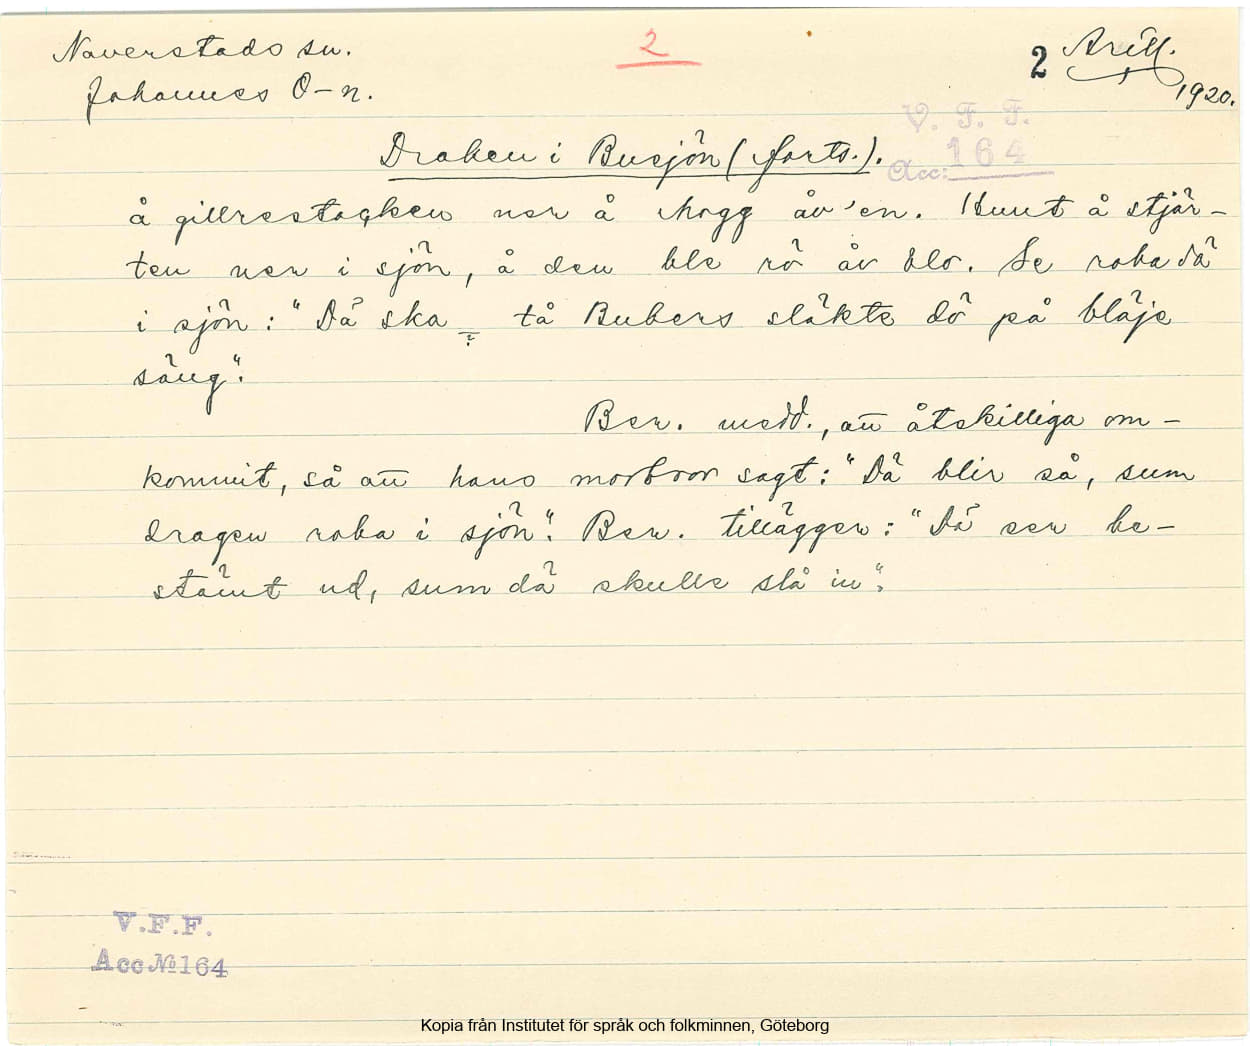 Naverstads sn.
Johannes O-n.
2
2 Arill.
1920.
V. F. F.
Acc: 164
Draken i Busjön (forts.).
å gillrestaqken ner å hogg åv 'en. Hunt å stjär-
ten ner i sjön, å den ble rö åv blo. Se roba dä
i sjön: "Dä ska ? tå Bubers släkte dö på bläje
säng".
Ber. medd., att åtskilliga om-
kommit, så att hans morbror sagt: "Dä blir så, sum
dragen roba i sjön". Ber. tillägger: "Dä eer be-
stämt ud, sum dä skulle slå in".
V.F.F.
Acc № 164
Kopia från Institutet för språk och folkminnen, Göteborg